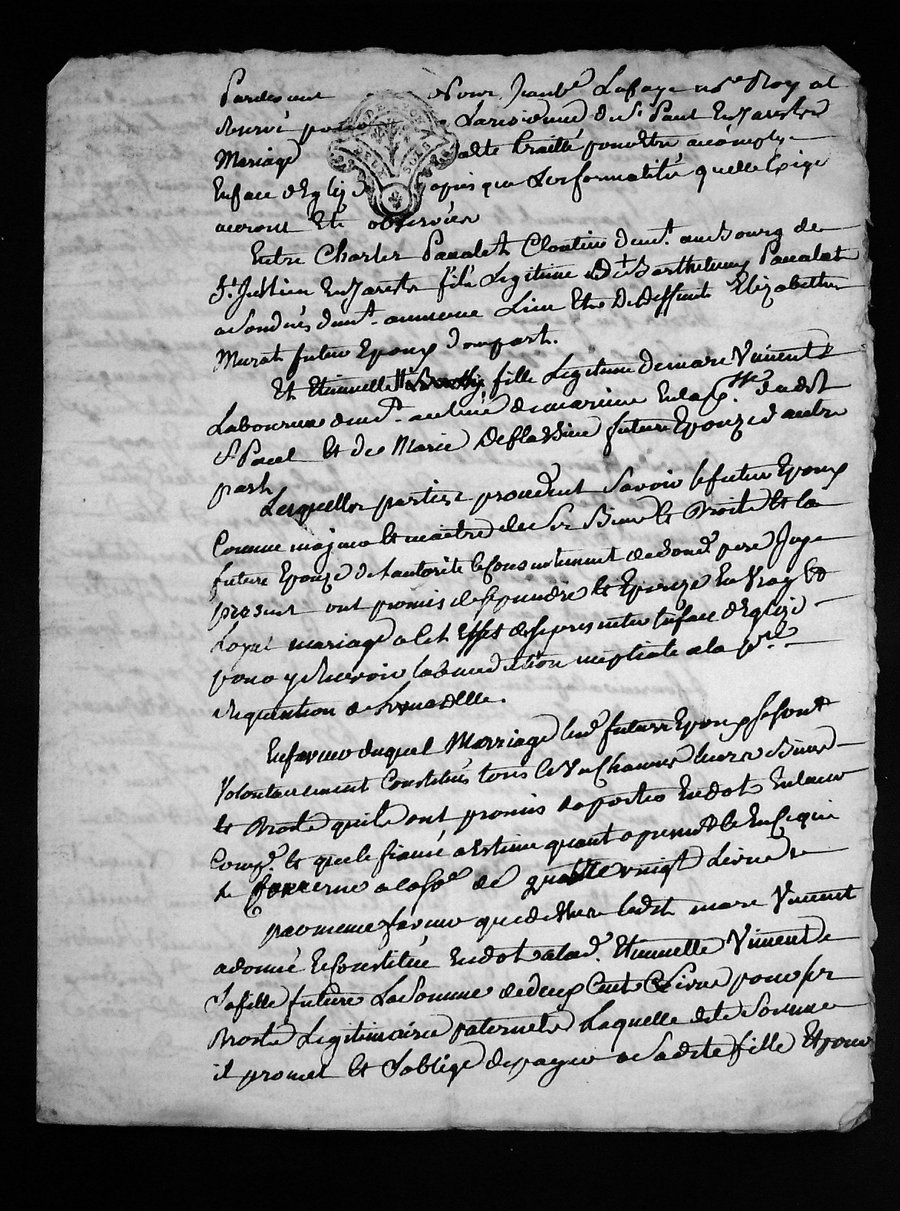 Pardevant Nous Jean Bte Lafaye nre Roy al
Reservé pour la residence de St Paul En Jarestz
Mariage a Eté traitté pour Etre accomply
En face d'Eglize apres que Les formalités quelle Exige
auront Eté observées
Entre Charles Panalet Cloutier demt. au bourg de
St. Jullien En Jarestz fils Legitime de Barthelemy Panalet
demt. au meme Lieu Et de Deffunte Elizabeth
Murat futur Epoux d'une part.
Et Etiennette fille Legitime de marc Vincent
Laboureur demt. au lieu de En la psse. dudt
St Paul Et de Marie future Epouze d'autre
part
Lesquelles parties procedent Savoir le futur Epoux
Comme majeur et maitre de Ses Biens et Droits Et la
future Epouze de l'autorité Et Consentement de Sond. pere Icy
present ont promis de Se prendre Et Epouzer En Vray Et
Loyal mariage a cet Effet de Se presenter En face d'Eglize
pour y Recevoir la benediction nuptiale a la pre.
Requisition de L'un d'Elle.
En faveur duquel Marriage Les futurs Epoux Se Sont
Volontairement Constitués tous Et Un Chacun Leurs Biens
Et Droits qu'ils ont promis d'aporter En dot En Leur
Comp. Et que le fiancé a Estimé quant a present Et En Ce qui
le Concerne a la Se. de quattre vingt Livres
par meme faveur que dessus ledit marc Vincent
a donné Et Constitué En dot a lad. Etiennette Vincent
Sa fille future La Somme de deux Cent Livres pour Ses
Droits Legitimaires paternels Laquelle dite Somme
il promet Et S'oblige de payer a Sa dite fille Et pour